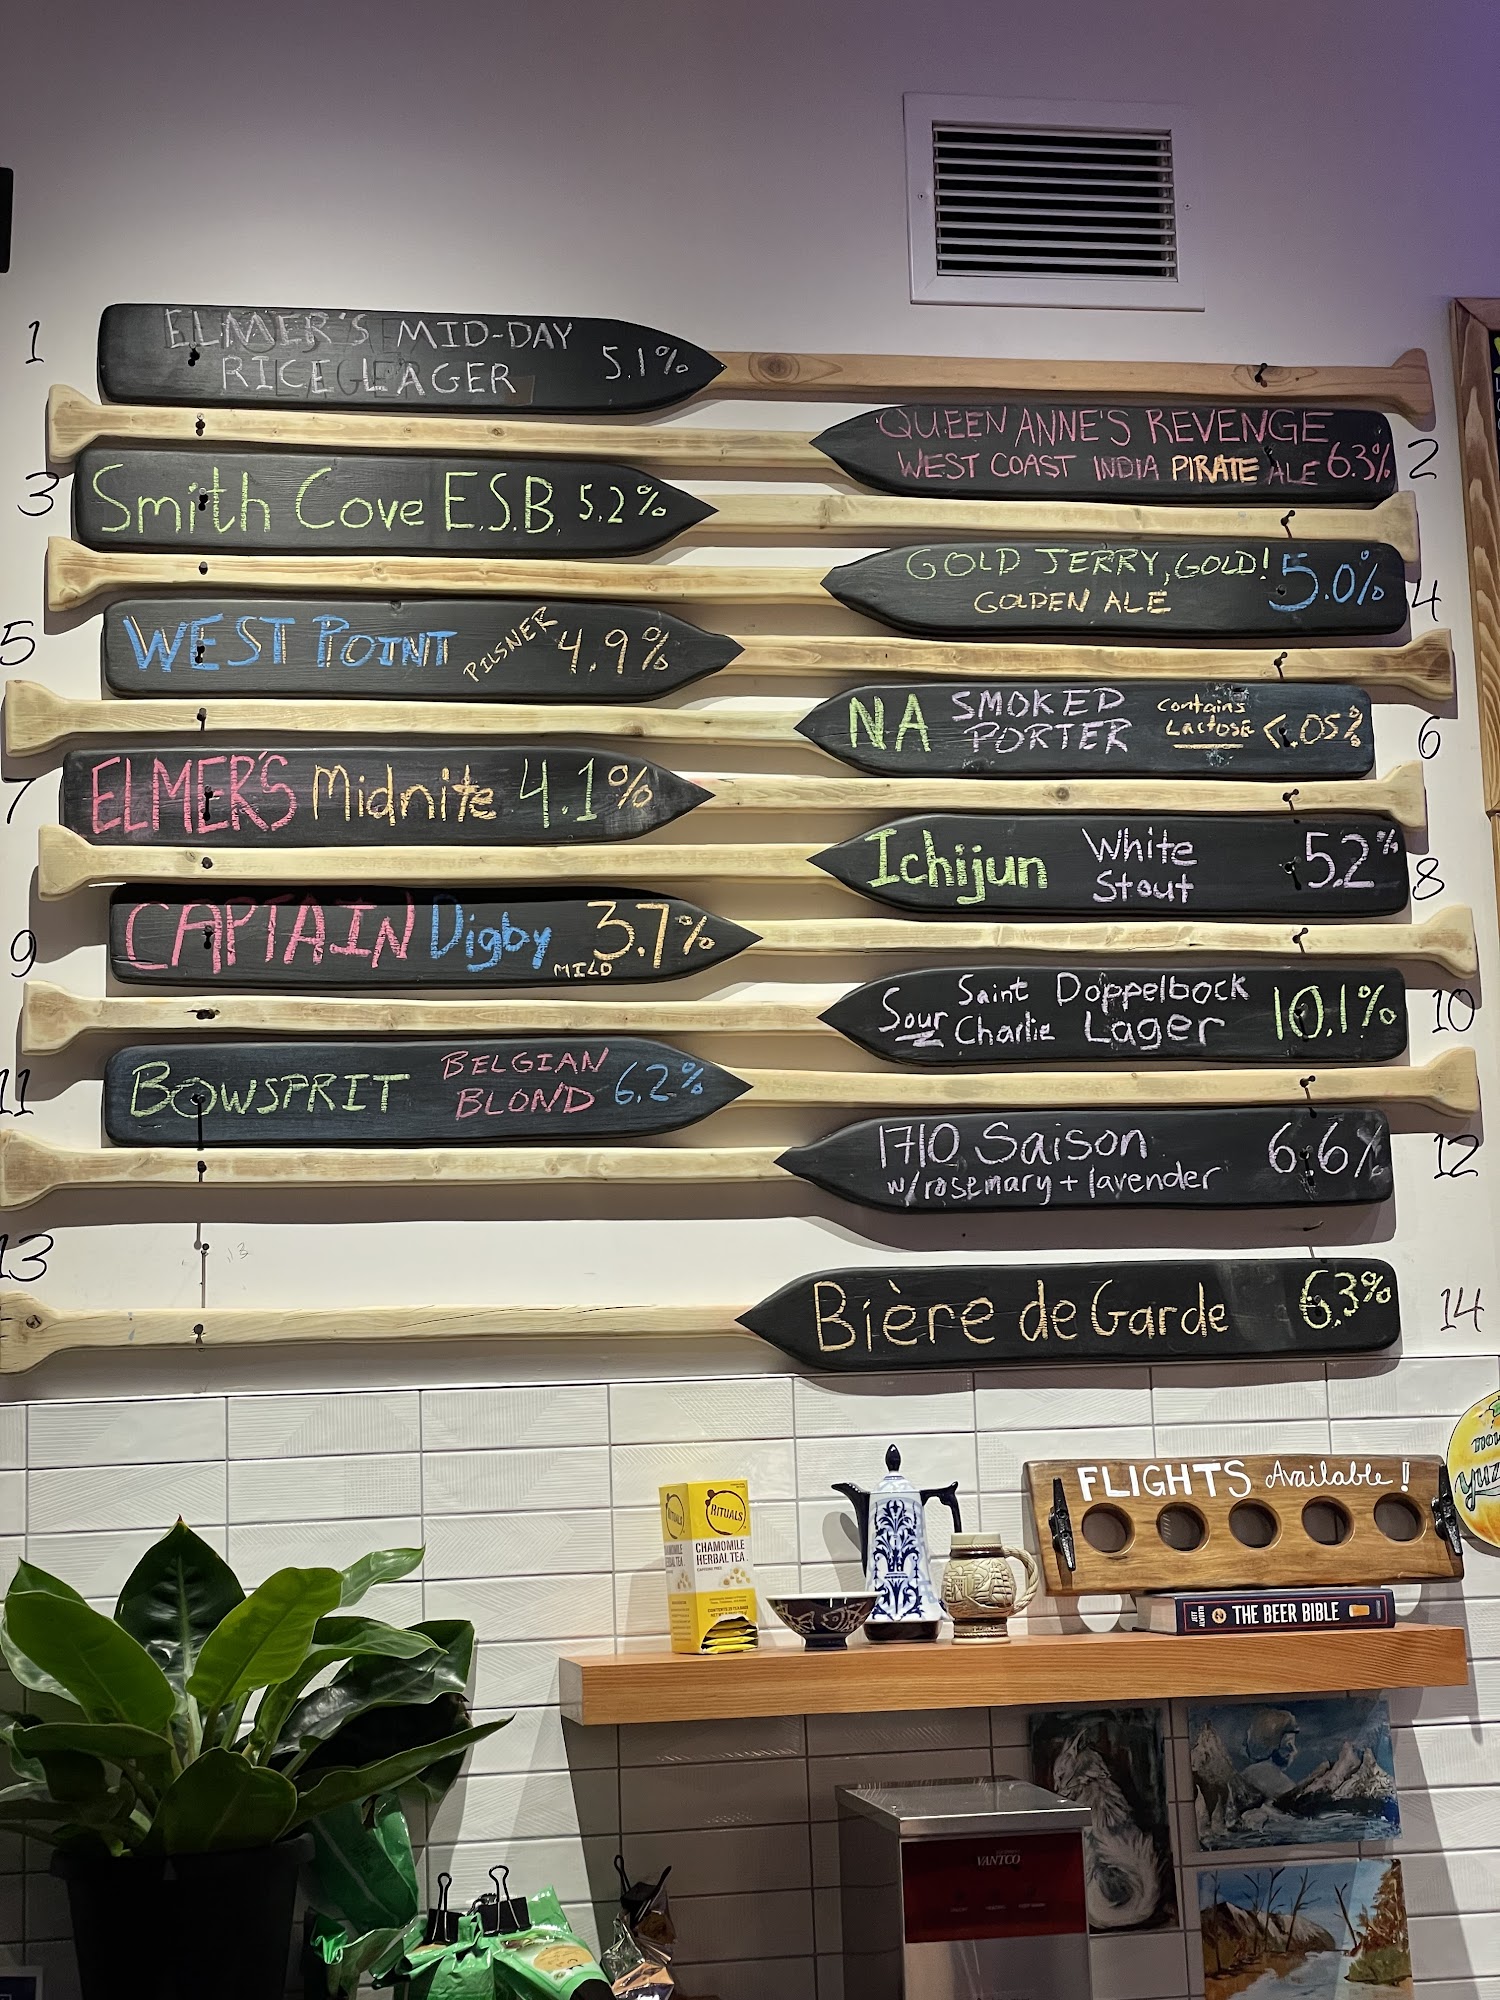 1
ELMER'S MID-DAY
RICE LAGER 5.1%
QUEEN ANNE'S REVENGE
WEST COAST INDIA PIRATE ALE 6.3%
2
3
Smith Cove E.S.B. 5.2%
GOLD JERRY, GOLD!
GOLDEN ALE
5.0%
4
5
WEST POINT PILSNER 4.9%
NA SMOKED
PORTER
contains
Lactose
<.05%
6
7
ELMER'S Midnite 4.1%
Ichijun White
Stout
5.2%
8
9
CAPTAIN Digby MILD 3.7%
Sour Saint
Charlie
Doppelbock
Lager
10.1%
10
11
BOWSPRIT BELGIAN
BLOND
6.2%
1710 Saison
w/rosemary + lavender
6.6%
12
13
13
Bière de Garde 6.3%
14
FLIGHTS Available!
RITUALS
CHAMOMILE
HERBAL TEA
THE BEER BIBLE
VANTCO